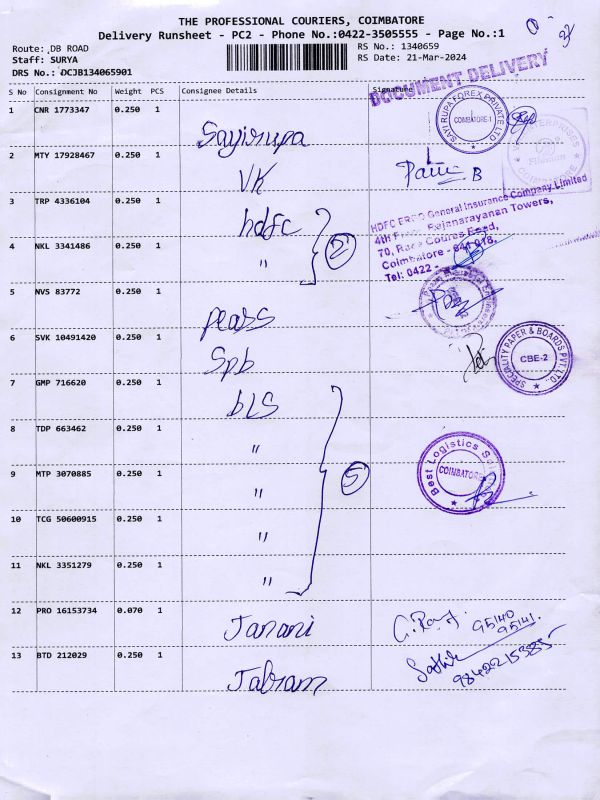 THE PROFESSIONAL COURIERS, COIMBATORE
Delivery Runsheet - PC2 - Phone No.:0422-3505555 - Page No.:1
Route: DB ROAD
RS No.: 1340659
Staff: SURYA
RS Date: 21-Mar-2024
DRS No.: DCJB134065901
S No Consignment No Weight PCS Consignee Details Signature
DOCUMENT DELIVERY
1 CNR 1773347 0.250 1 Sayirupa
SAYI RUPA FOREX PRIVATE LTD
COIMBATORE-1
2 MTY 17928467 0.250 1 VK
B
3 TRP 4336104 0.250 1 hdfc
HDFC ERGO General Insurance Company Limited
4th Floor, Rajanarayanan Towers,
70, Race Course Road,
Coimbatore - 641 018.
Tel: 0422 -
4 NKL 3341486 0.250 1 "
2
5 NVS 83772 0.250 1 peass
6 SVK 10491420 0.250 1 Spb
SPECIALITY PAPER & BOARDS PVT LTD.
CBE-2
7 GMP 716620 0.250 1 bLS
8 TDP 663462 0.250 1 "
Best Logistics
COIMBATORE
9 MTP 3070885 0.250 1 "
5
10 TCG 50600915 0.250 1 "
11 NKL 3351279 0.250 1 "
12 PRO 16153734 0.070 1 Janani
95140
95141
13 BTD 212029 0.250 1 Jabram
9842215385